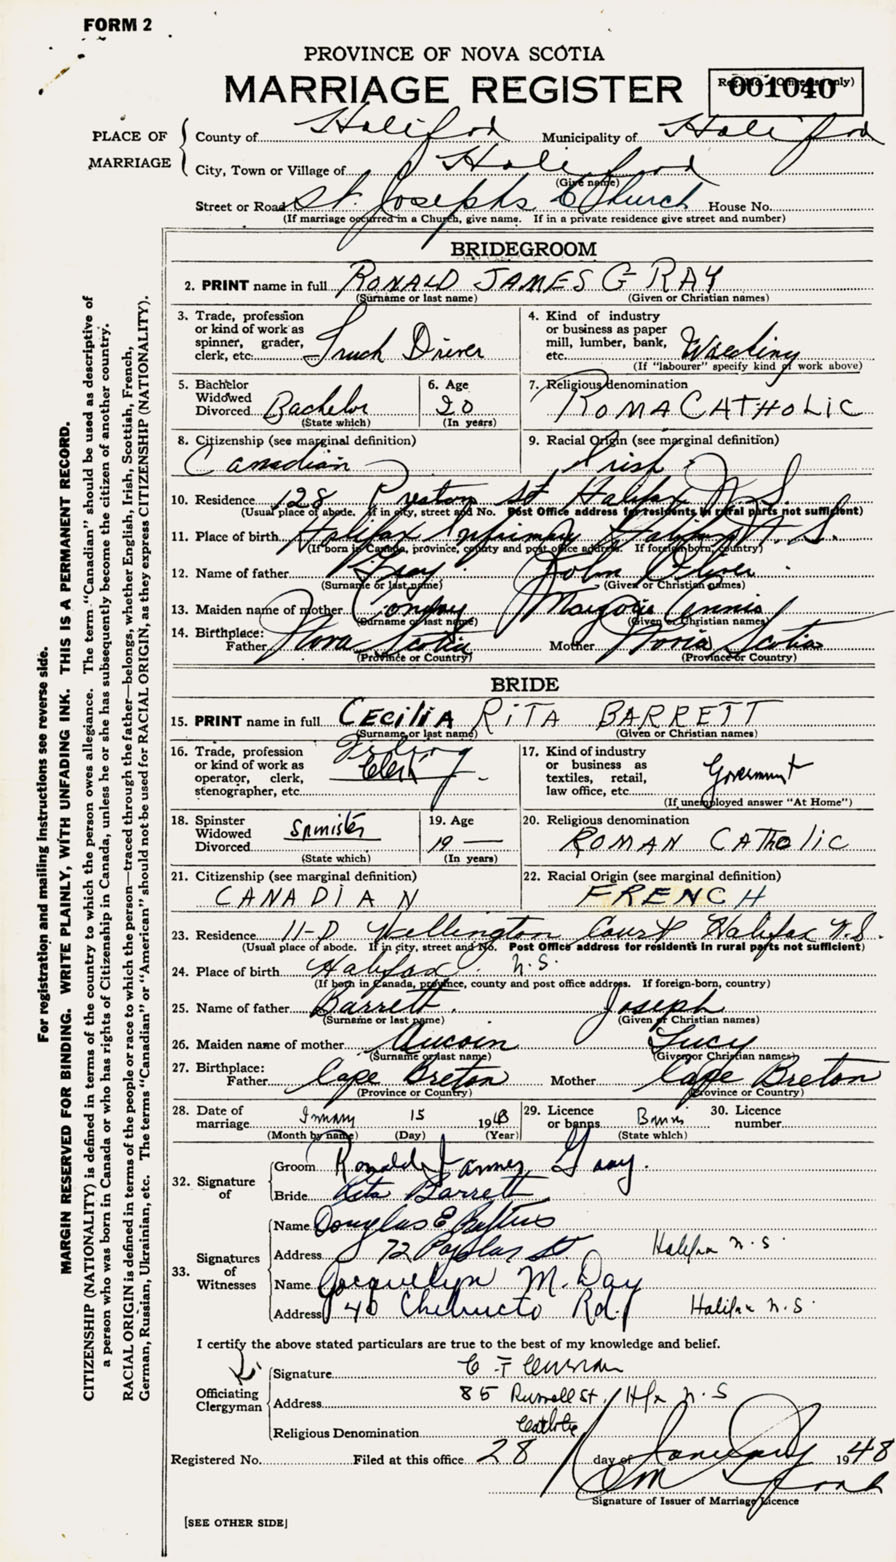 FORM 2
PROVINCE OF NOVA SCOTIA
MARRIAGE REGISTER
001040
PLACE OF MARRIAGE
County of Halifax Municipality of Halifax
City, Town or Village of Halifax
(Give name)
Street or Road St. Josephs Church House No.
(If marriage occurred in a Church, give name. If in a private residence give street and number)
BRIDEGROOM
2. PRINT name in full RONALD JAMES GRAY
(Surname or last name) (Given or Christian names)
3. Trade, profession or kind of work as spinner, grader, clerk, etc. Truck Driver
4. Kind of industry or business as paper mill, lumber, bank, etc.
(If "labourer" specify kind of work above)
5. Bachelor Widowed Divorced Bachelor
(State which)
6. Age 20
(In years)
7. Religious denomination ROMA CATHOLIC
8. Citizenship (see marginal definition) Canadian
9. Racial Origin (see marginal definition) Irish
10. Residence 128 Preston St Halifax N.S.
(Usual place of abode. If in city, street and No. Post Office address for residents in rural parts not sufficient)
11. Place of birth Halifax Infirmary Halifax N.S.
(If born in Canada, province, county and post office address. If foreign-born, country)
12. Name of father Gray John
(Surname or last name) (Given or Christian names)
13. Maiden name of mother Marjorie
(Surname or last name) (Given or Christian names)
14. Birthplace: Father Nova Scotia Mother Nova Scotia
(Province or Country) (Province or Country)
BRIDE
15. PRINT name in full CECILIA RITA BARRETT
(Surname or last name) (Given or Christian names)
16. Trade, profession or kind of work as operator, clerk, stenographer, etc. Clerk
17. Kind of industry or business as textiles, retail, law office, etc. Government
(If unemployed answer "At Home")
18. Spinster Widowed Divorced Spinister
(State which)
19. Age 19
(In years)
20. Religious denomination ROMAN CATHOLIC
21. Citizenship (see marginal definition) CANADIAN
22. Racial Origin (see marginal definition) FRENCH
23. Residence 11-D Wellington Court Halifax N.S.
(Usual place of abode. If in city, street and No. Post Office address for residents in rural parts not sufficient)
24. Place of birth Halifax N.S.
(If born in Canada, province, county and post office address. If foreign-born, country)
25. Name of father Barrett Joseph
(Surname or last name) (Given or Christian names)
26. Maiden name of mother Aucoin Lucy
(Surname or last name) (Given or Christian names)
27. Birthplace: Father Cape Breton Mother Cape Breton
(Province or Country) (Province or Country)
28. Date of marriage January 15 1948
(Month by name) (Day) (Year)
29. Licence or banns Banns
(State which)
30. Licence number
32. Signature of
Groom Ronald James Gray.
Bride Rita Barrett
33. Signatures of Witnesses
Name Douglas E
Address 72 Poplar St Halifax N.S.
Name Jacquelyn M. Day
Address 40 Chebucto Rd. Halifax N.S.
I certify the above stated particulars are true to the best of my knowledge and belief.
Officiating Clergyman
Signature C F Curran
Address 85 Russell St. Hfx N.S
Religious Denomination Catholic
Registered No. Filed at this office 28 day of January 1948
Signature of Issuer of Marriage Licence
[SEE OTHER SIDE]
For registration and mailing instructions see reverse side.
MARGIN RESERVED FOR BINDING. WRITE PLAINLY, WITH UNFADING INK. THIS IS A PERMANENT RECORD.
CITIZENSHIP (NATIONALITY) is defined in terms of the country to which the person owes allegiance. The term "Canadian" should be used as descriptive of
a person who was born in Canada or who has rights of Citizenship in Canada, unless he or she has subsequently become the citizen of another country.
RACIAL ORIGIN is defined in terms of the people or race to which the person—traced through the father—belongs, whether English, Irish, Scottish, French,
German, Russian, Ukrainian, etc. The terms "Canadian" or "American" should not be used for RACIAL ORIGIN, as they express CITIZENSHIP (NATIONALITY).